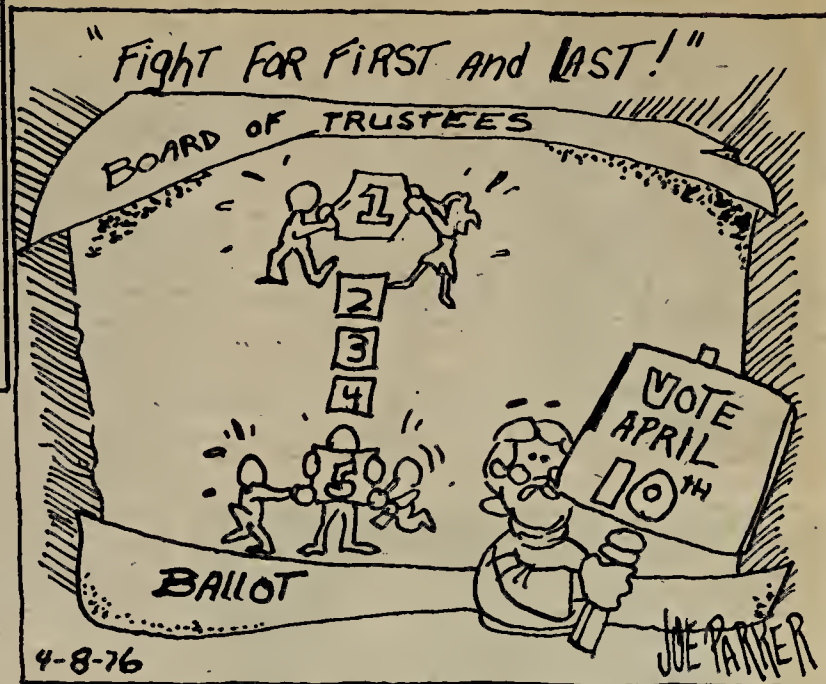 "FigHT FOR FiRST and LAST!"
BOARD OF TRUSTEES
1
2
3
4
5
VOTE
APRIL
10TH
BALLOT
4-8-76
JOE PARKER